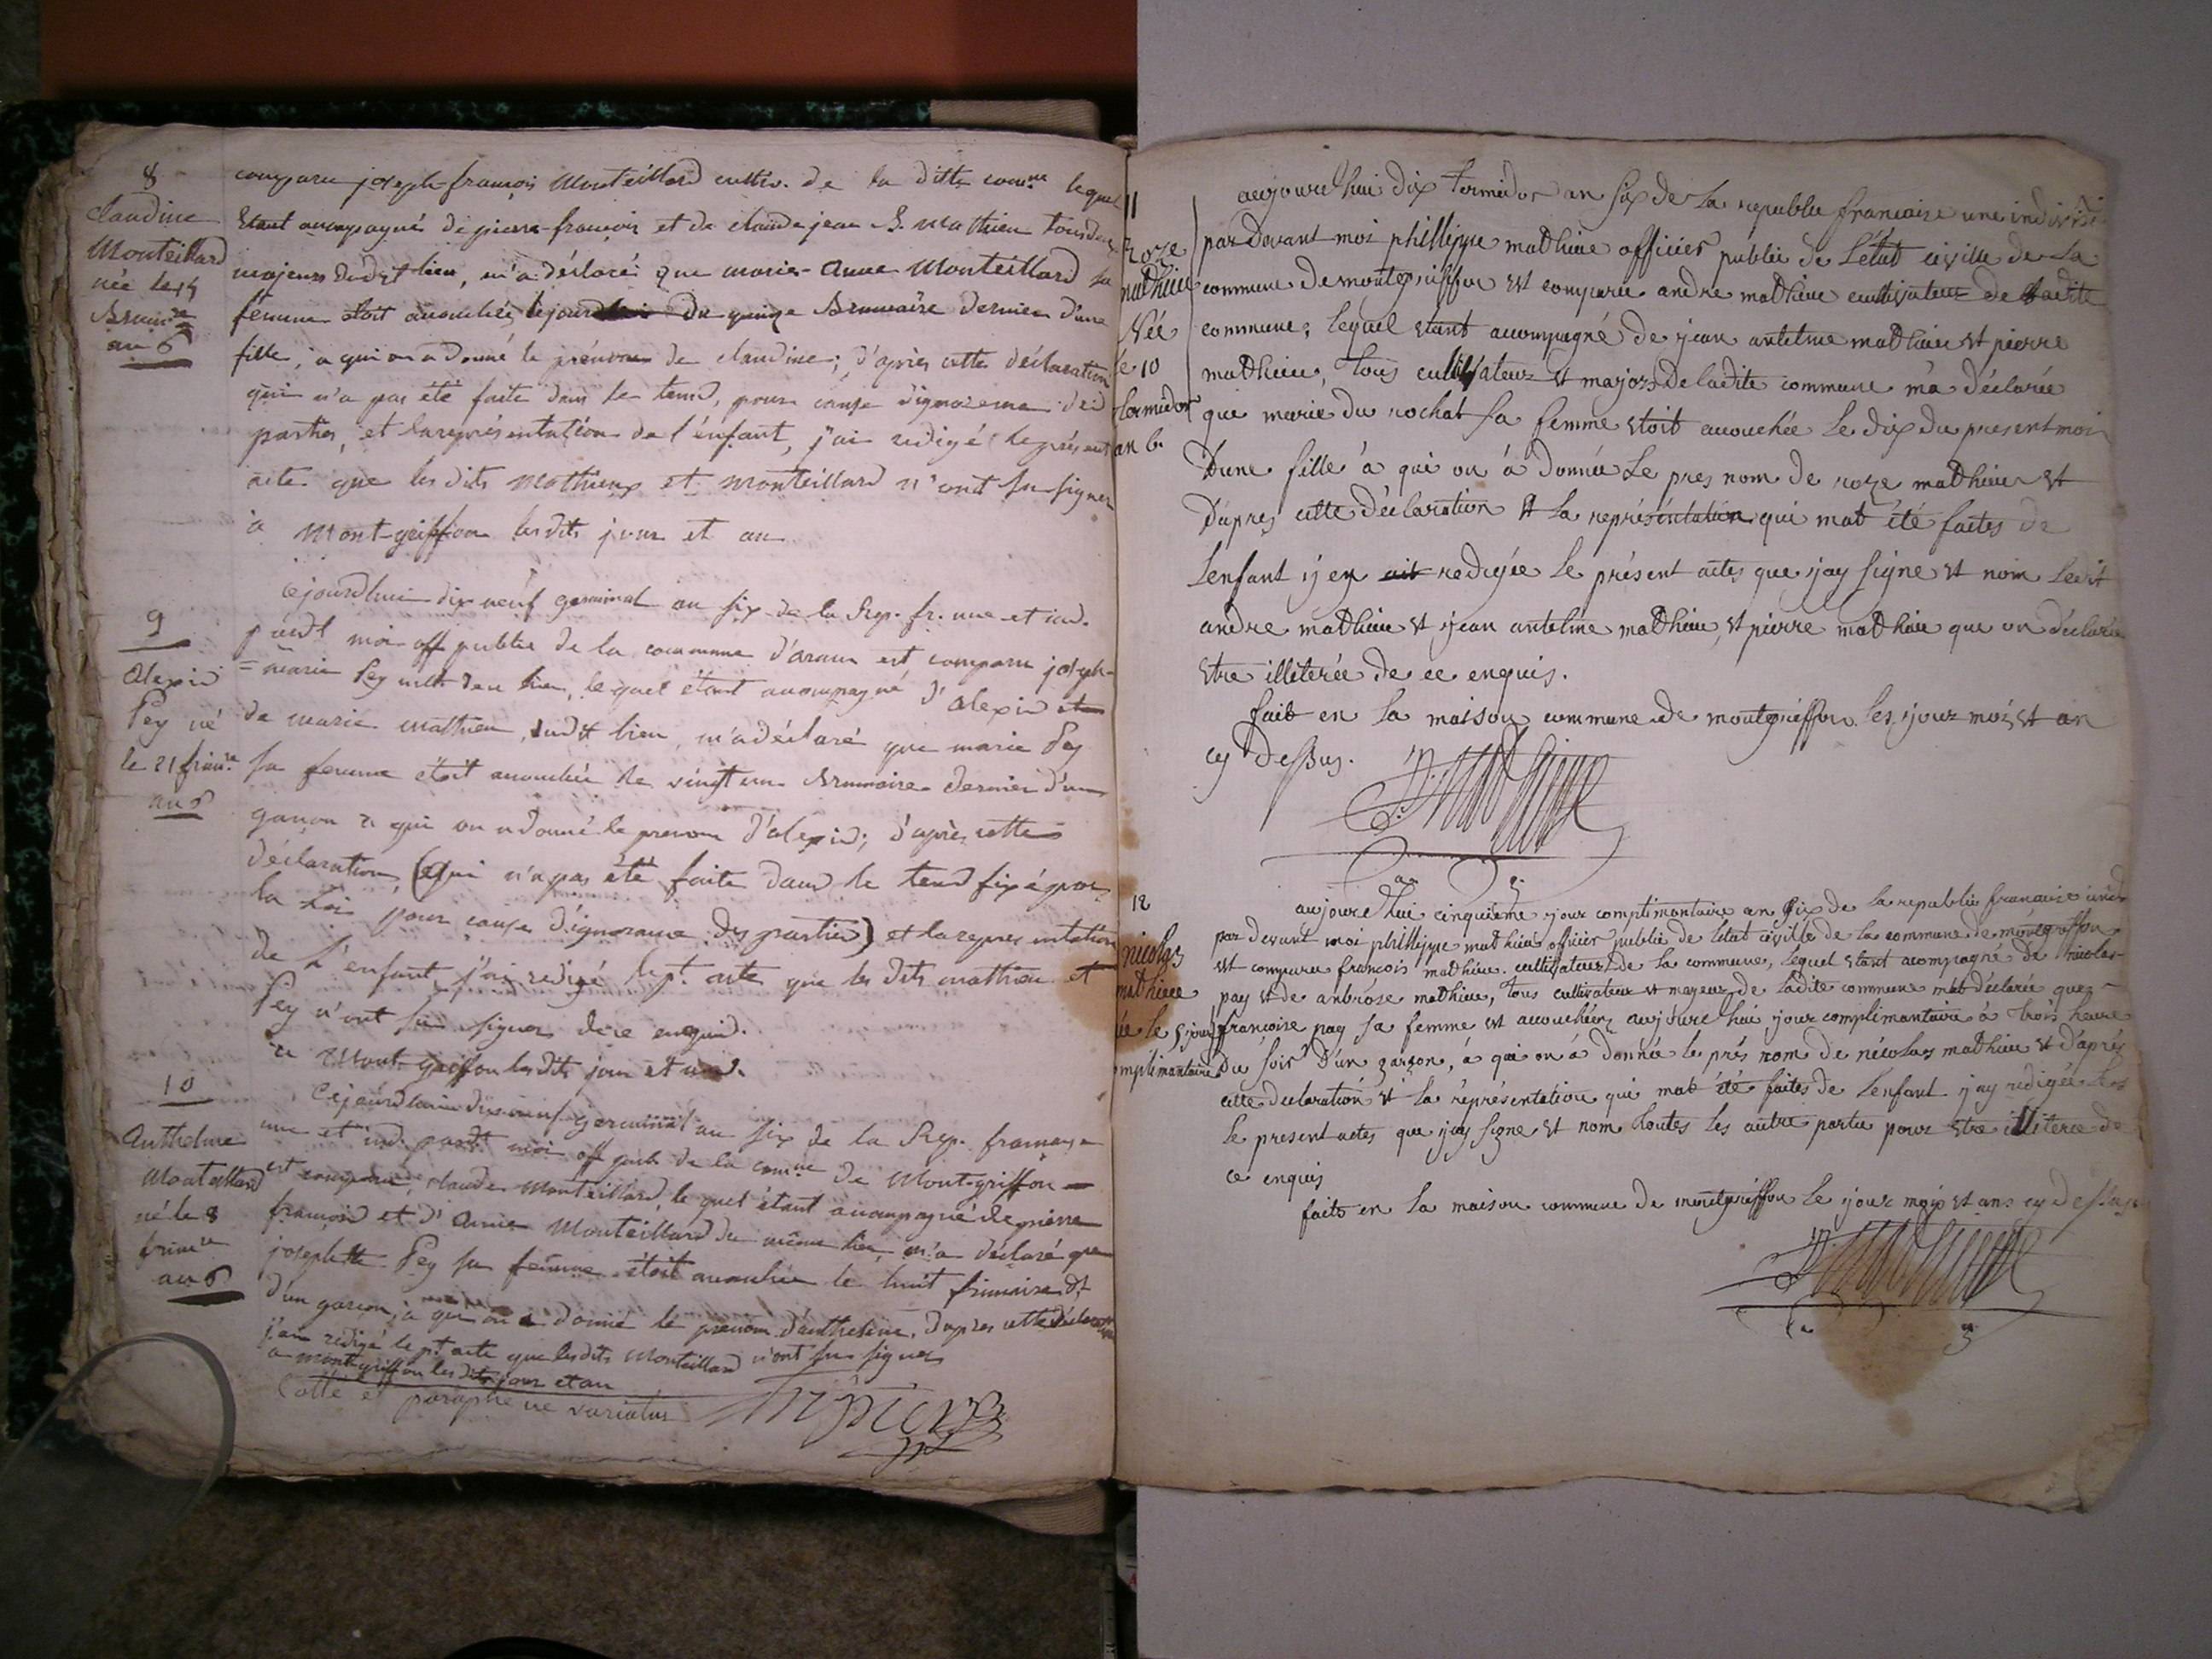 8
claudine
Monteillard
née le 15
Brum.re
an 6
comparu joseph-françois Monteillard cultiv. de la ditte com.ne lequel
étant accompagné de pierre-françois et de claude jean B. Mathieu tous deux
majeurs dudit lieu, m'a déclaré que marie-Anne Monteillard sa
femme étoit accouchée le jour du quinze Brumaire dernier d'une
fille, a qui on a donné le prénom de claudine; d'après cette déclaration
qui n'a pas été faite dans le tems, pour cause d'ignorance des
parties, et la représentation de l'énfant, j'ai rédigé le présent
acte que les dits Mathieux et Monteillard n'ont su signer
à Mont-griffon les dits jour et an
9
Alexis
Pey né
le 21 frim.re
an 6
Cejourdhui dix neuf germinal an six de la Rep. fr. une et ind.
pardt moi off public de la commune d'aranc est comparu joseph-
=marie Pey cult dud lieu, lequel étant accompagné d'alexis et
de marie mathieu, dudit lieu, m'a déclaré que marie Pey
sa femme étoit accouchée le vingt un Brumaire dernier d'un
garçon a qui on a donné le prenom d'alexis; d'après cette
déclaration, (qui n'a pas été faite dans le tems fixé par
la Loi pour cause d'ignorance des parties) et la représentation
de l'enfant, j'ai redigé le pt. acte que les dits mathieu et
Pey n'ont su signer de ce enquis.
a Mont griffon les dits jour et an.
10
Anthelme
Monteillard
né le 8
frim.re
an 6
Cejourdhui dix neuf germinal an six de la Rep. françoise
une et ind. pardt moi off pub. de la com.ne de Mont-griffon
est comparu claude Monteillard, le quel étant accompagné de pierre
françois et d'Anne Monteillard du même lieu, m'a déclaré que
josephte Pey sa femme étoit accouchée le huit frimaire dt
d'un garçon, a qui on a donné le prenom d'anthelme, d'après cette déclaration
j'ai redigé le pt. acte que les dits Monteillard n'ont su signer
a Mont griffon les dits jour et an
Cotté et paraphé ne varietur
11
Roze
mathieu
Née
le 10
termidor
an 6.
aujourd'hui dix termidor an six de la republie francaise une indivisi
par devant moi phillippe mathieu officier public de l'état civille de la
commune de montgriffon est comparu andre mathieu cultivateur de ladite
commune, lequel étant accompagné de jean antelme mathieu et pierre
mathieu, tous cultivateur et majors de ladite commune m'a déclarée
que marie du rochat sa femme étoit accouchée le dix du present mois
D'une fille à qui on à donnée le pres nom de roze mathieu et
d'apres cette déclaration et la représentation qui mat été faites de
lenfant ij en ait redigée le présent actes que ijay signe et nom ledit
andre mathieu et ijean antelme mathieu, et pierre mathieu que on déclarée
etre illeterée de ce enquis.
fait en la maison commune de montgriffon les ijour mois et an
cy dessus.
12
nicolas
mathieu
née le 5 jour
complimantaire
aujourd'hui cinquième ijour complimantaire an six de la republie francaise unéd
par devant moi phillippe mathieu officier publie de létat civille de la commune de montgriffon
est comparu francois mathieu cultivateur de la commune, lequel étant acompagné de nicolas
pay et de anbroise mathieu, tous cultivateur et mayeur de ladite commune mat déclarée que
françoise pay sa femme est accouchéez aujourd'hui ijour complimantaire à trois heure
du soir d'un garzon, à qui on à donnée le prés nom de nicolas mathieu et d'après
cette declaration et la réprésentation qui mat été faites de lenfant ijay redigée les
le present actes que ijay signe et nom toutes les autre partie pour etre illeterée de
ce enquis
faits en la maison commune de montgriffon le ijour mois et ans cy dessus